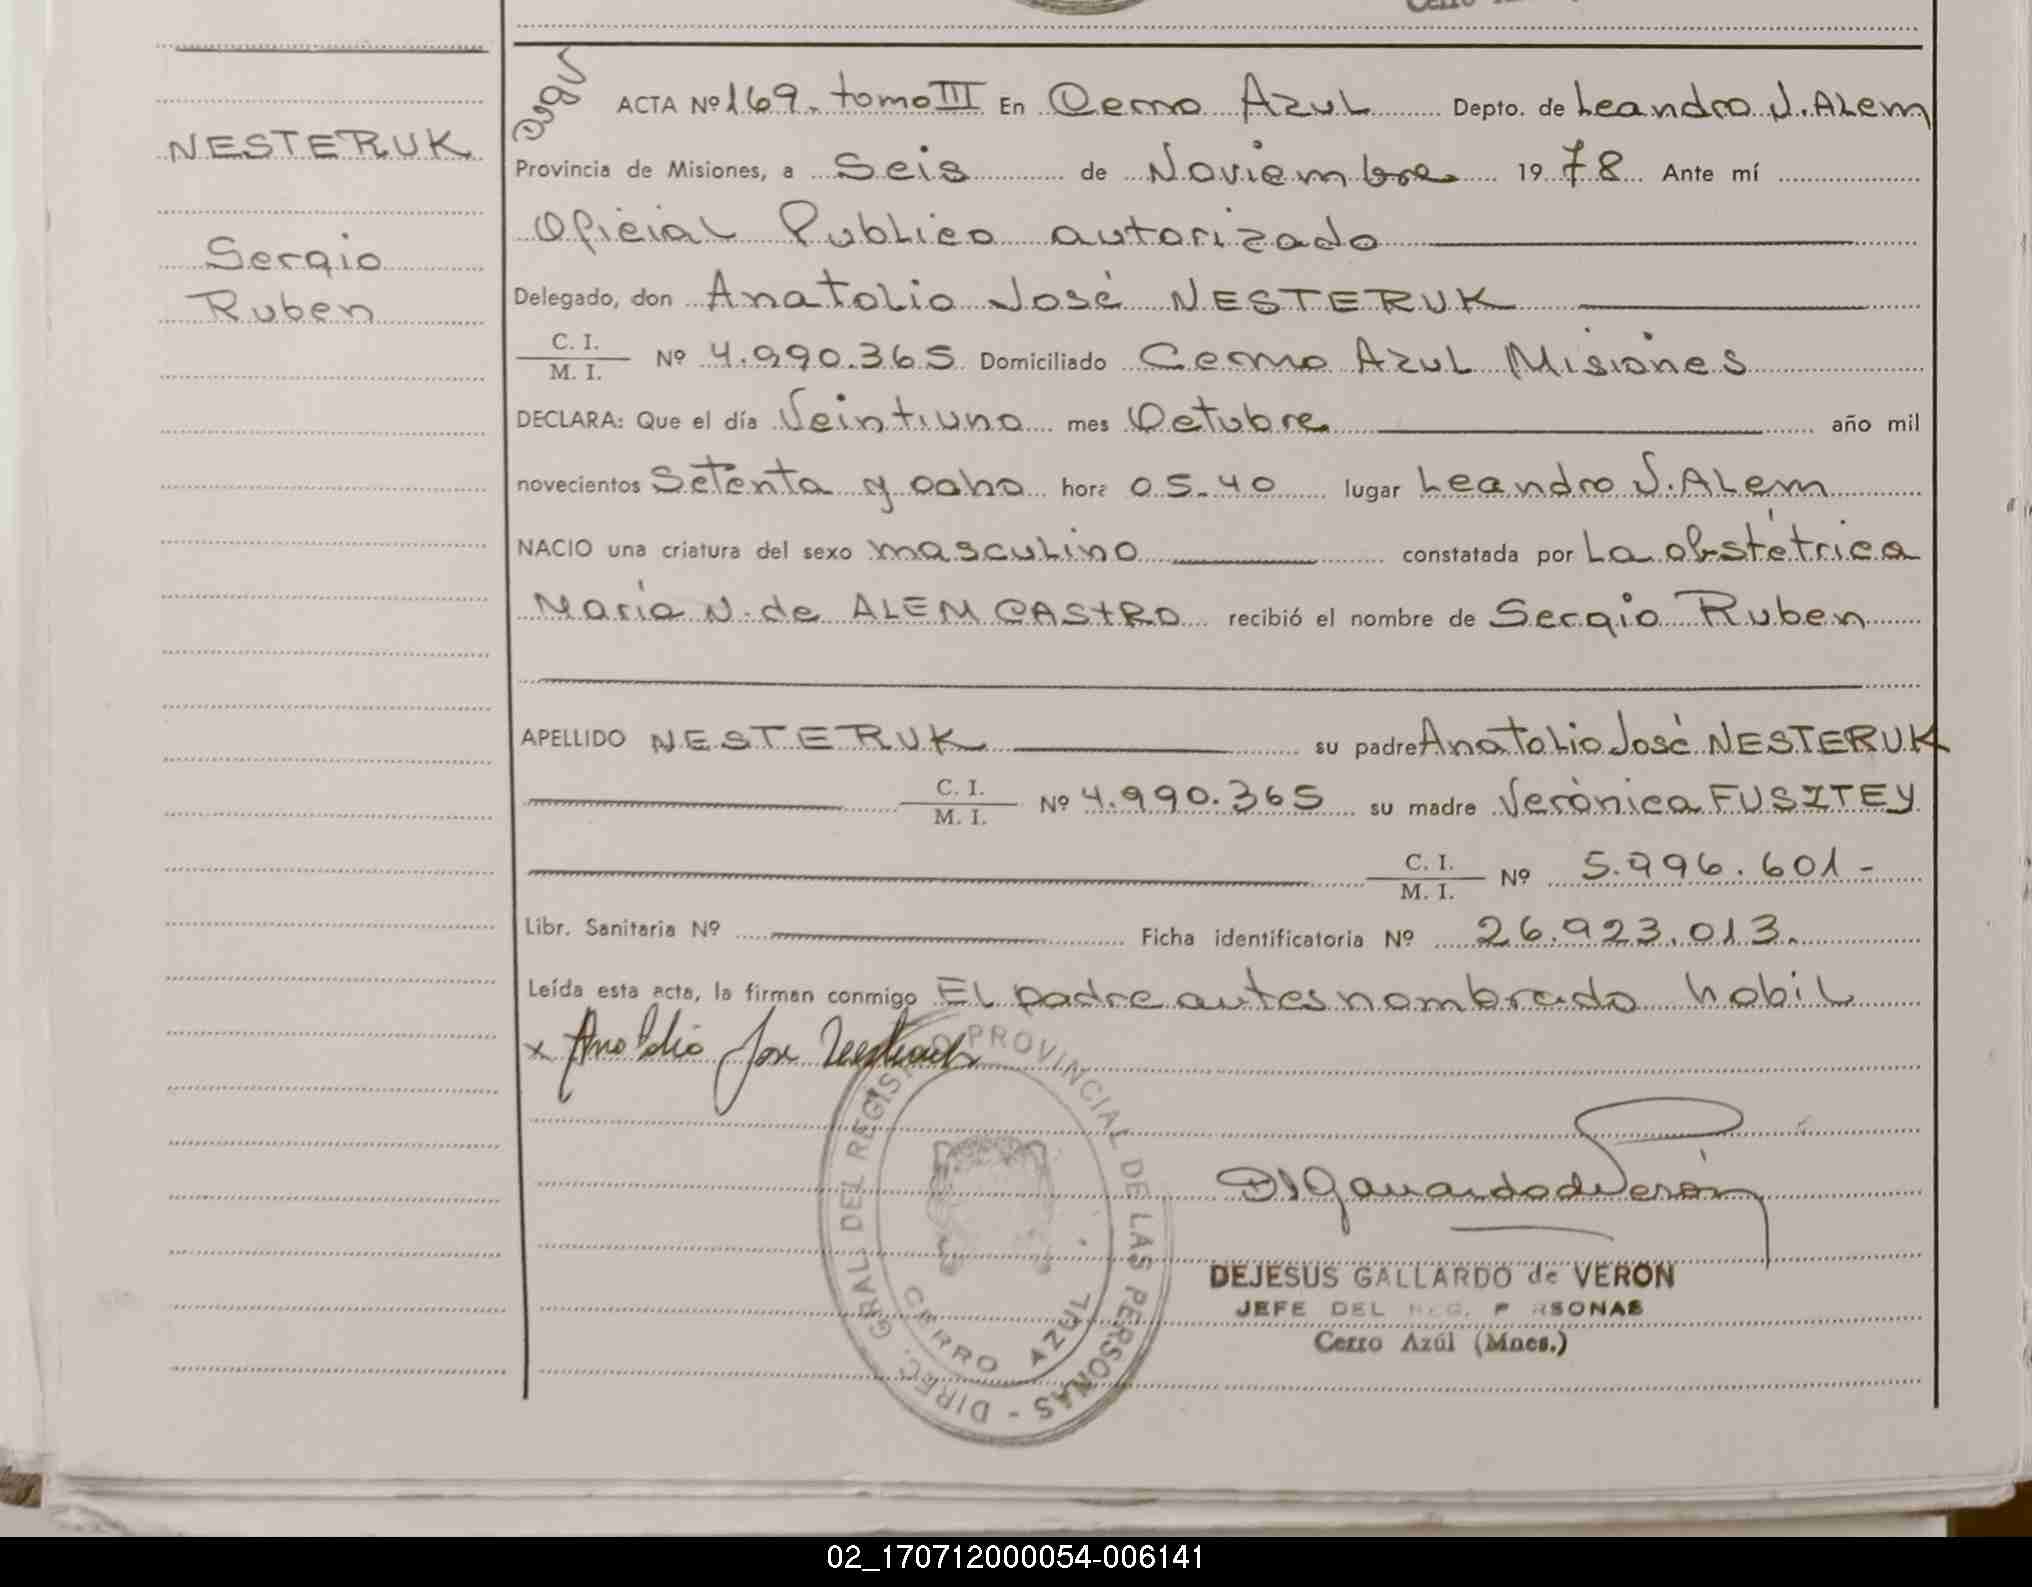 NESTERUK
Sergio
Ruben
ACTA Nº 169. tomo III En Cerro Azul Depto. de Leandro N. Alem
Provincia de Misiones, a Seis de Noviembre 1978 Ante mí
Oficial Publico autorizado
Delegado, don Anatolio José NESTERUK
C. I.
M. I.
Nº 4.990.365 Domiciliado Cerro Azul Misiones
DECLARA: Que el día Veintiuno mes Octubre año mil
novecientos Setenta y ocho hora 05.40 lugar Leandro N. Alem
NACIO una criatura del sexo masculino constatada por La obstétrica
María N. de ALEM CASTRO recibió el nombre de Sergio Ruben
APELLIDO NESTERUK su padre Anatolio José NESTERUK
C. I.
M. I.
Nº 4.990.365 su madre Verónica FUSITEY
C. I.
M. I.
Nº 5.996.601-
Libr. Sanitaria Nº Ficha identificatoria Nº 26.923.013.
Leída esta acta, la firman conmigo El padre antes nombrado habil
x Anatolio Jose Nesteruk
DIREC. GRAL DEL REGISTRO PROVINCIAL DE LAS PERSONAS -
CERRO AZUL
DEJESUS GALLARDO de VERON
JEFE DEL REG. PERSONAS
Cerro Azúl (Mnes.)
02_170712000054-006141